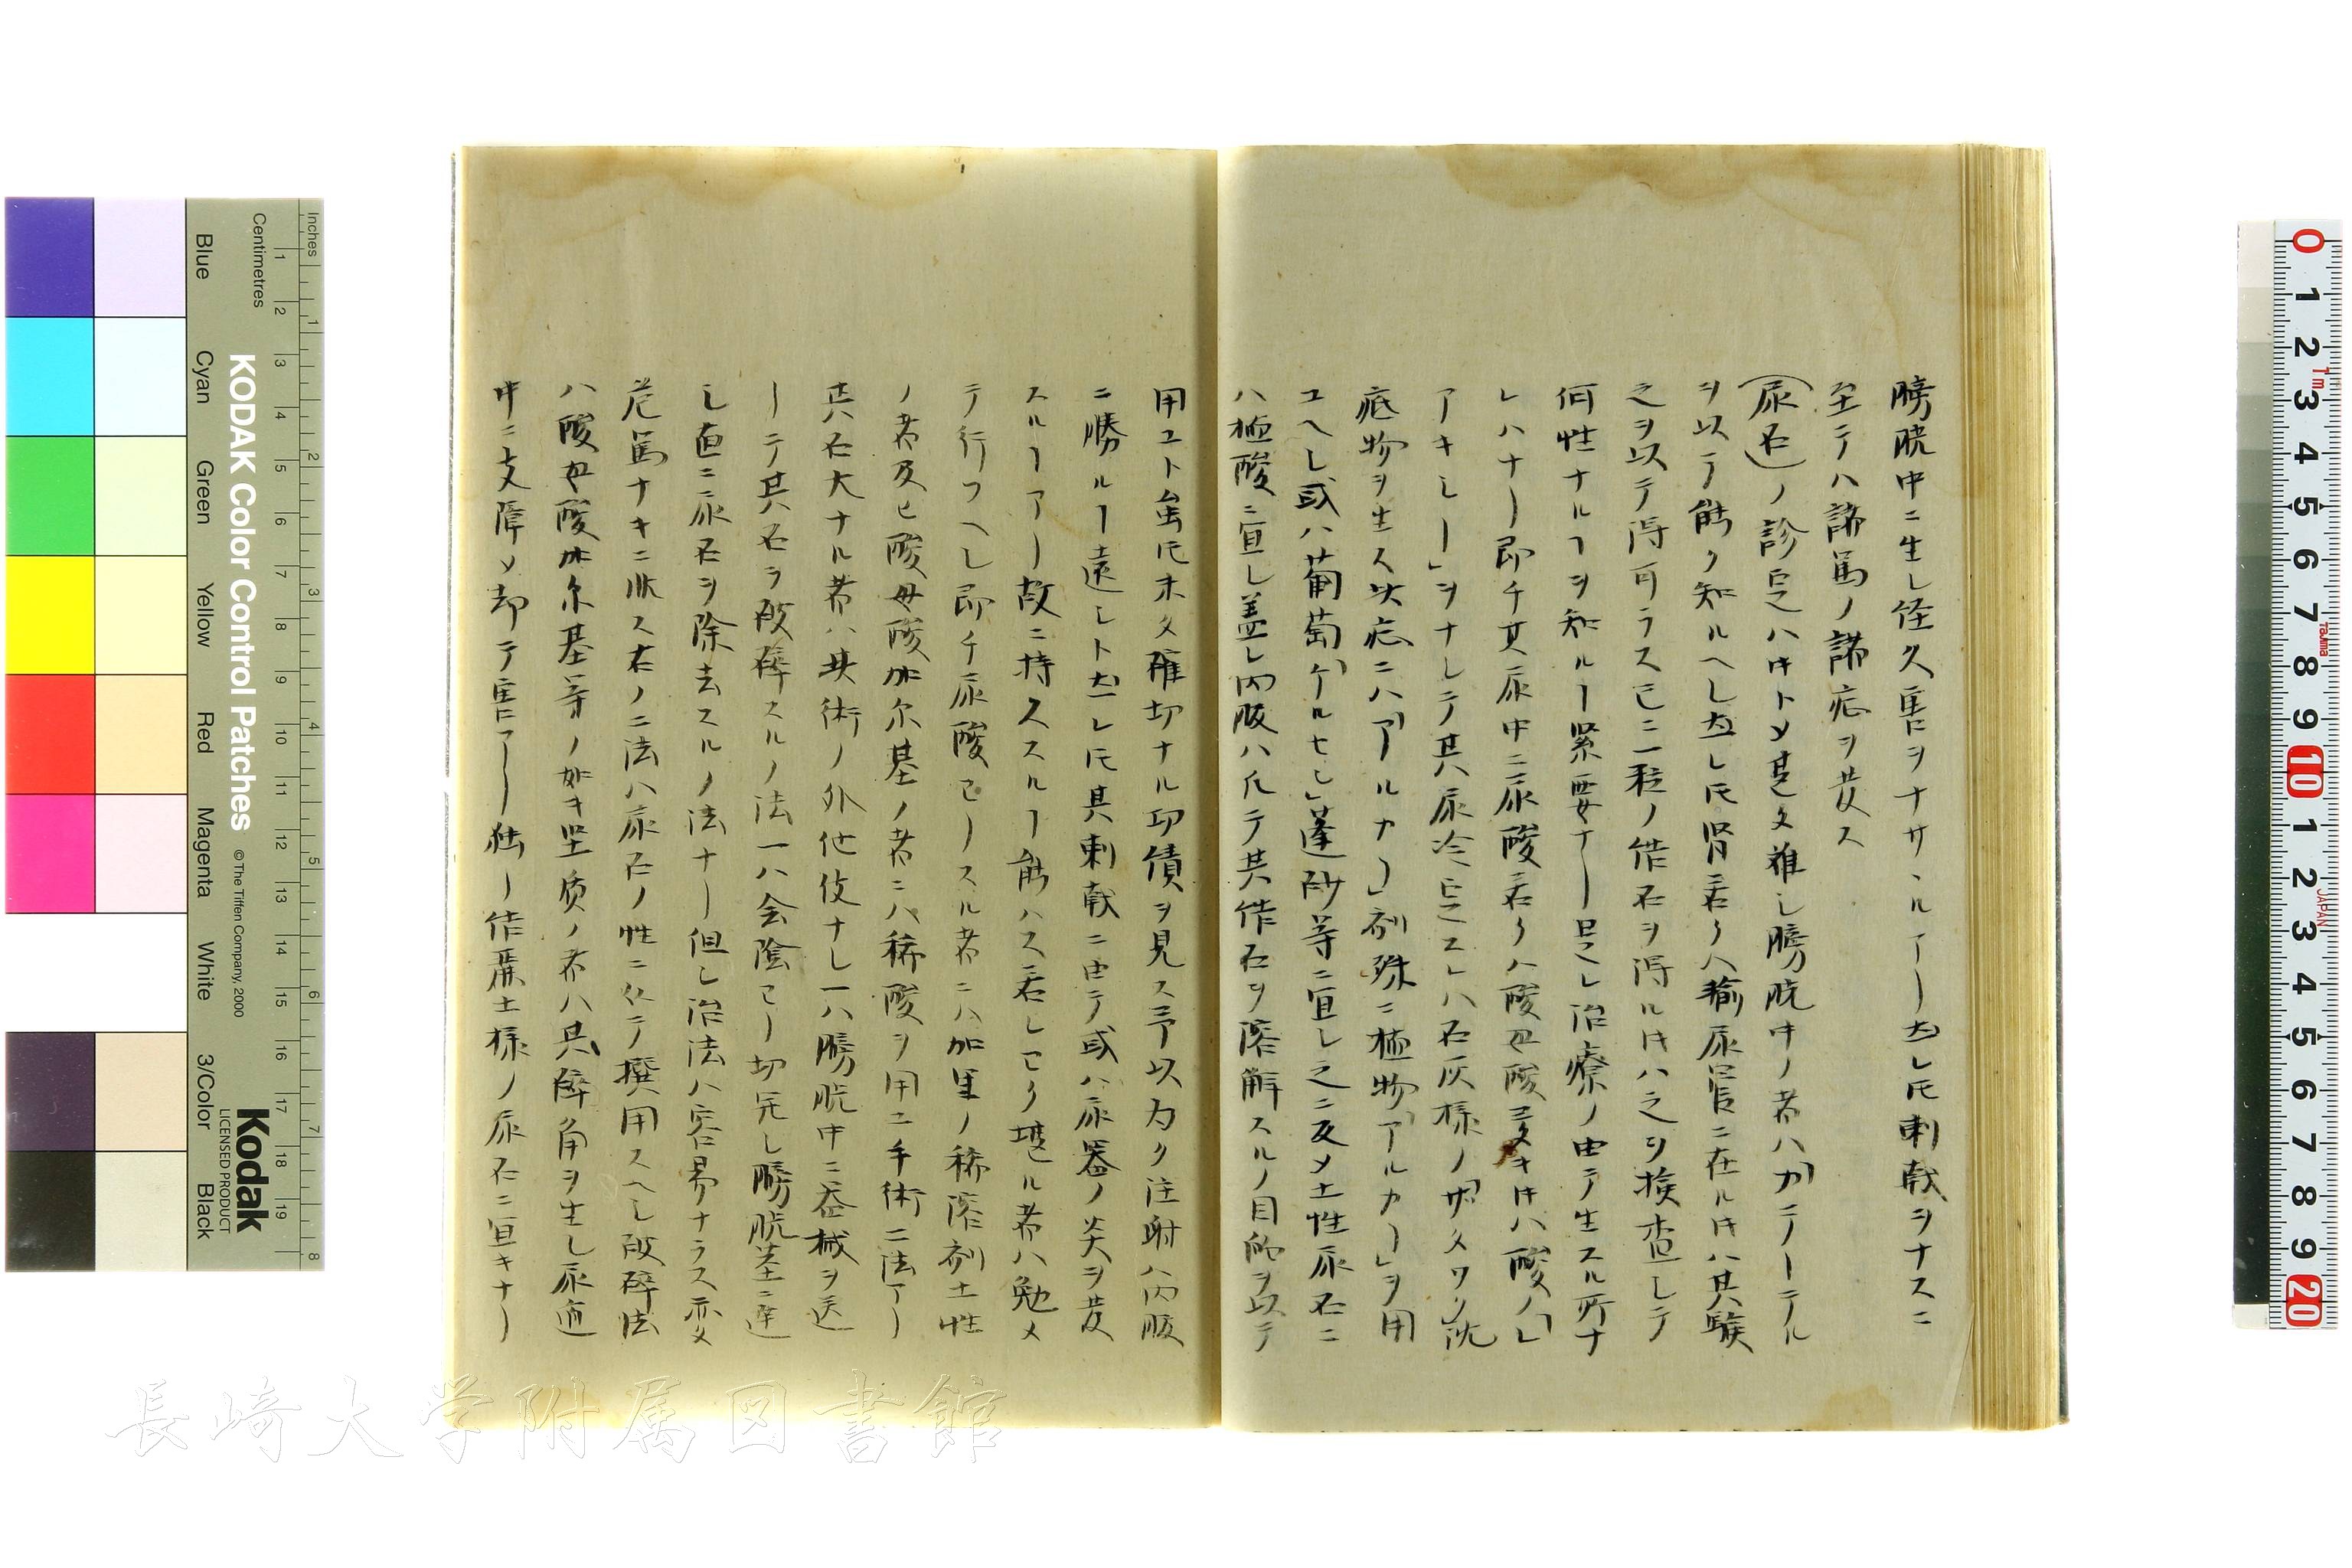 膀胱中ニ生シ径久害ヲナサヽルアリ然レ𪜈刺戟ヲナスニ
至テハ諦篤ノ諸症ヲ発ス
（尿石）ノ診定ハ甚タ難シ膀胱中ノ者ハ「カテーテル
ヲ以テ能ク知ルヘシ然レ𪜈腎若クハ輸尿管ニ在ル𪜈ハ其験
之ヲ以テ得可ラス已ニ一粒ノ作石ヲ得ル𪜈ハ之ヲ検査シテ
何性ナルヿヲ知ルヿ緊要ナリ是レ治療ノ由テ生スル所ナ
レハナリ即チ其尿中ニ尿酸若クハ酸母酸多キ𪜈ハ酸ノ「レ
アキシー」ヲナシテ其尿冷定スレハ石灰様ノ「ザタワク」沈
底物ヲ生ス此症ニハ「アルカリ」剤殊ニ植物「アルカリ」ヲ用
ユヘシ或ハ葡萄「ケルセレ」蓬砂等ニ宜シ之ニ反メ土性尿石ニ
ハ極酸ニ宜シ蓋シ内服ハ凡テ其作石ヲ溶解スルノ目的ヲ以テ
用ユト虽𪜈未タ確切ナル功績ヲ見ス予以為ク注射ハ内服
ニ勝ルヿ遠シト然レ𪜈其刺戟ニ由テ或ハ尿器ノ炎ヲ発
スルヿアリ故ニ持久スルヿ能ハス若シ已ク堪ル者ハ勉メ
テ行フヘシ即チ尿酸ヨリスル者ニハ加里ノ稀溶剤土性
ノ者及ヒ酸母酸加尓基ノ者ニハ稀酸ヲ用ユ手術二法アリ
其石大ナル者ハ其術ノ外他伎ナシ一ハ膀胱中ニ器械ヲ送
リテ其石ヲ破砕スルノ法一ハ会陰ヨリ切究シ膀胱茎ニ達
シ直ニ尿石ヲ除去スルノ法ナリ但シ治法ハ容易ナラス亦
危篤ナキニ非ス右ノ二法ハ尿石ノ性ニ仍テ撰用スヘシ破砕法
ハ酸母酸加尓基等ノ如キ坚质ノ者ハ其障角ヲ生シ尿道
中ニ支障メ却テ害アリ独リ作麻土様ノ尿石ニ宜キナリ
Inches
Centimetres
Blue
Cyan
Green
Yellow
Red
Magenta
White
3/Color
Black
KODAK Color Control Patches
© The Tiffen Company, 2000
Kodak
LICENSED PRODUCT
JAPAN
長崎大学附属図書館